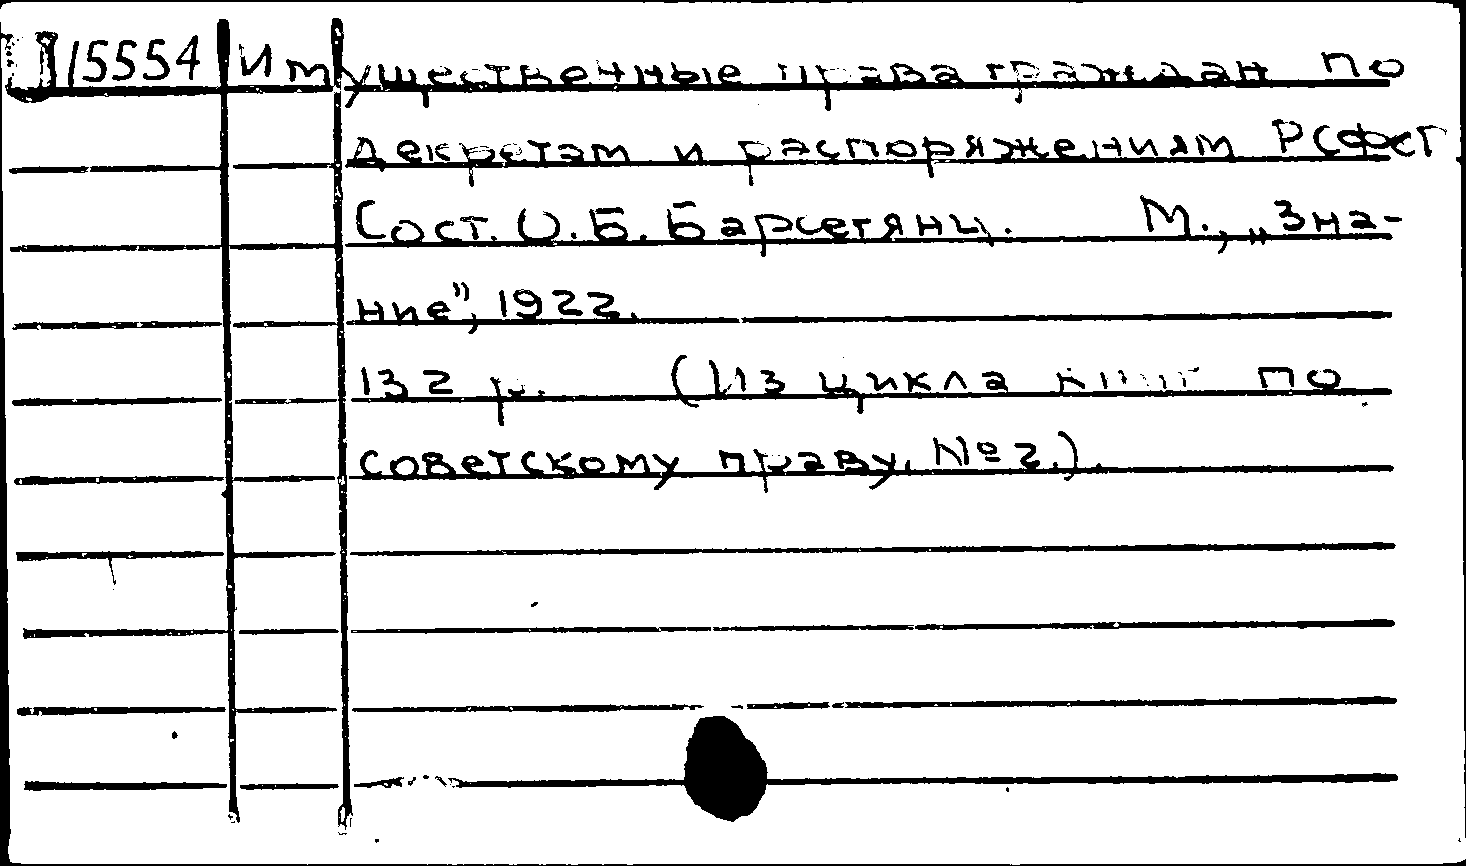 15554 Имущественные права граждан по
декретам и распоряжениям РСФСР
Сост. О.Б. Барсегянц. М., „Зна-
ние”, 1922.
132 р. (Из цикла книг по
советскому праву. № 2.).